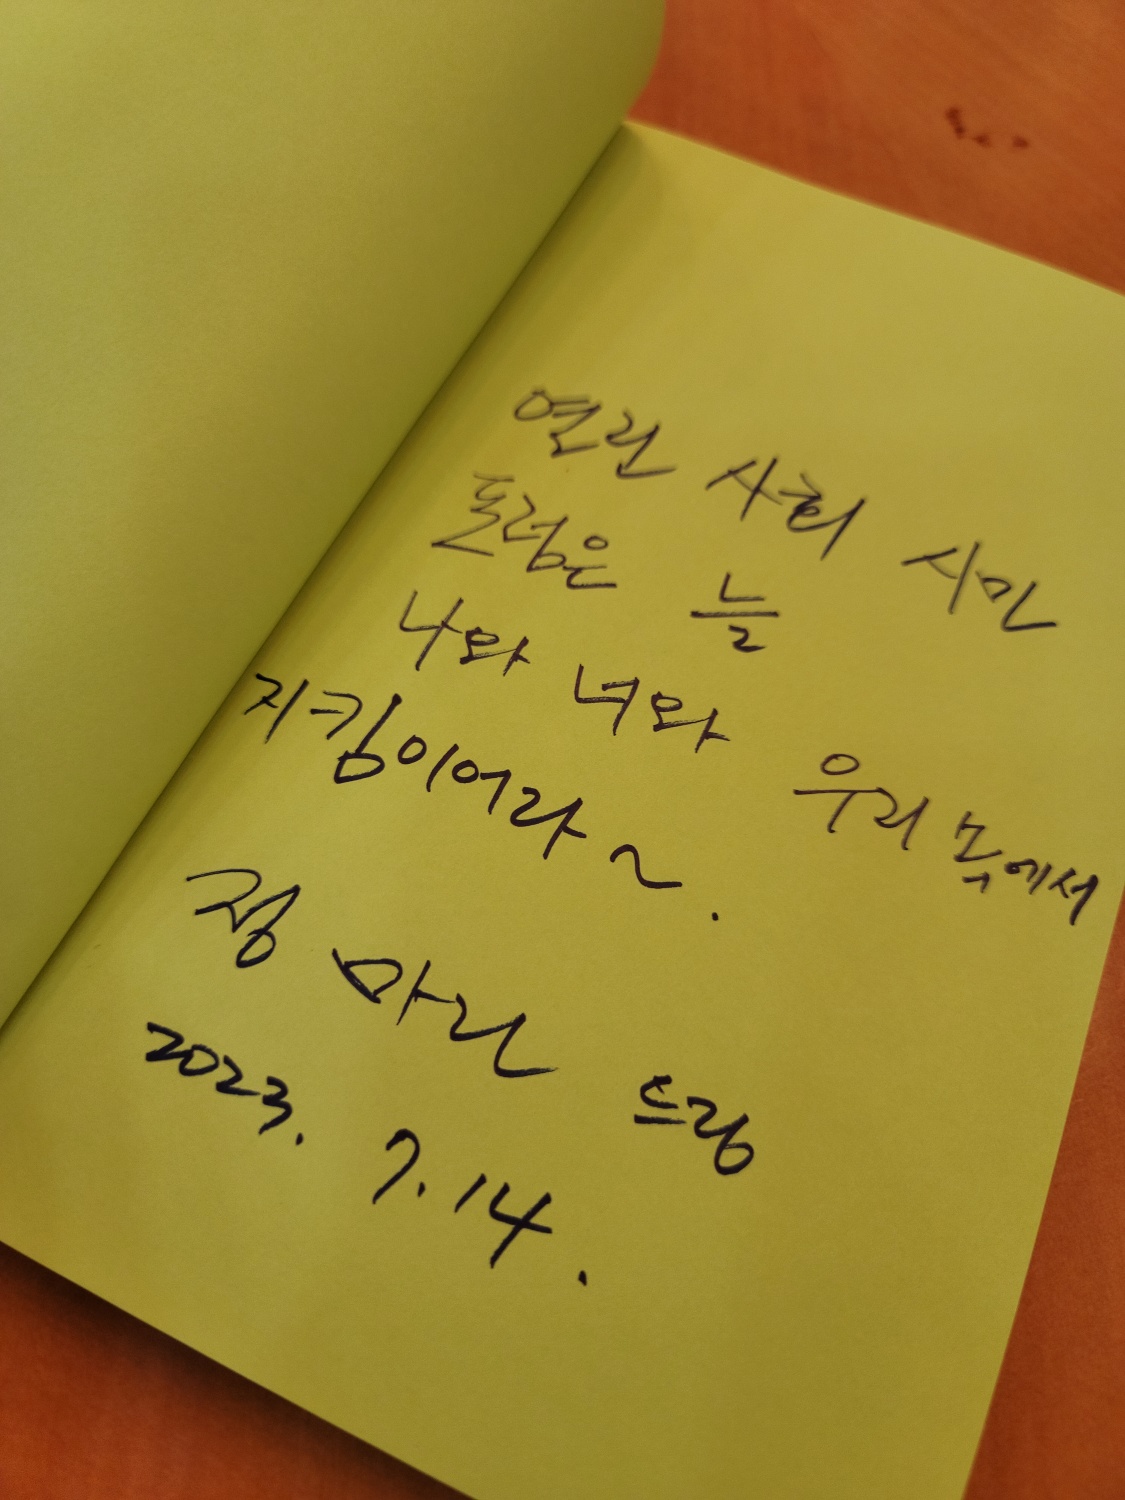 열린 사회 시민
돌림은 늘
나와 너와 우리 속에서
지킴이어라~.
정 마리 드림
2023. 7. 14.